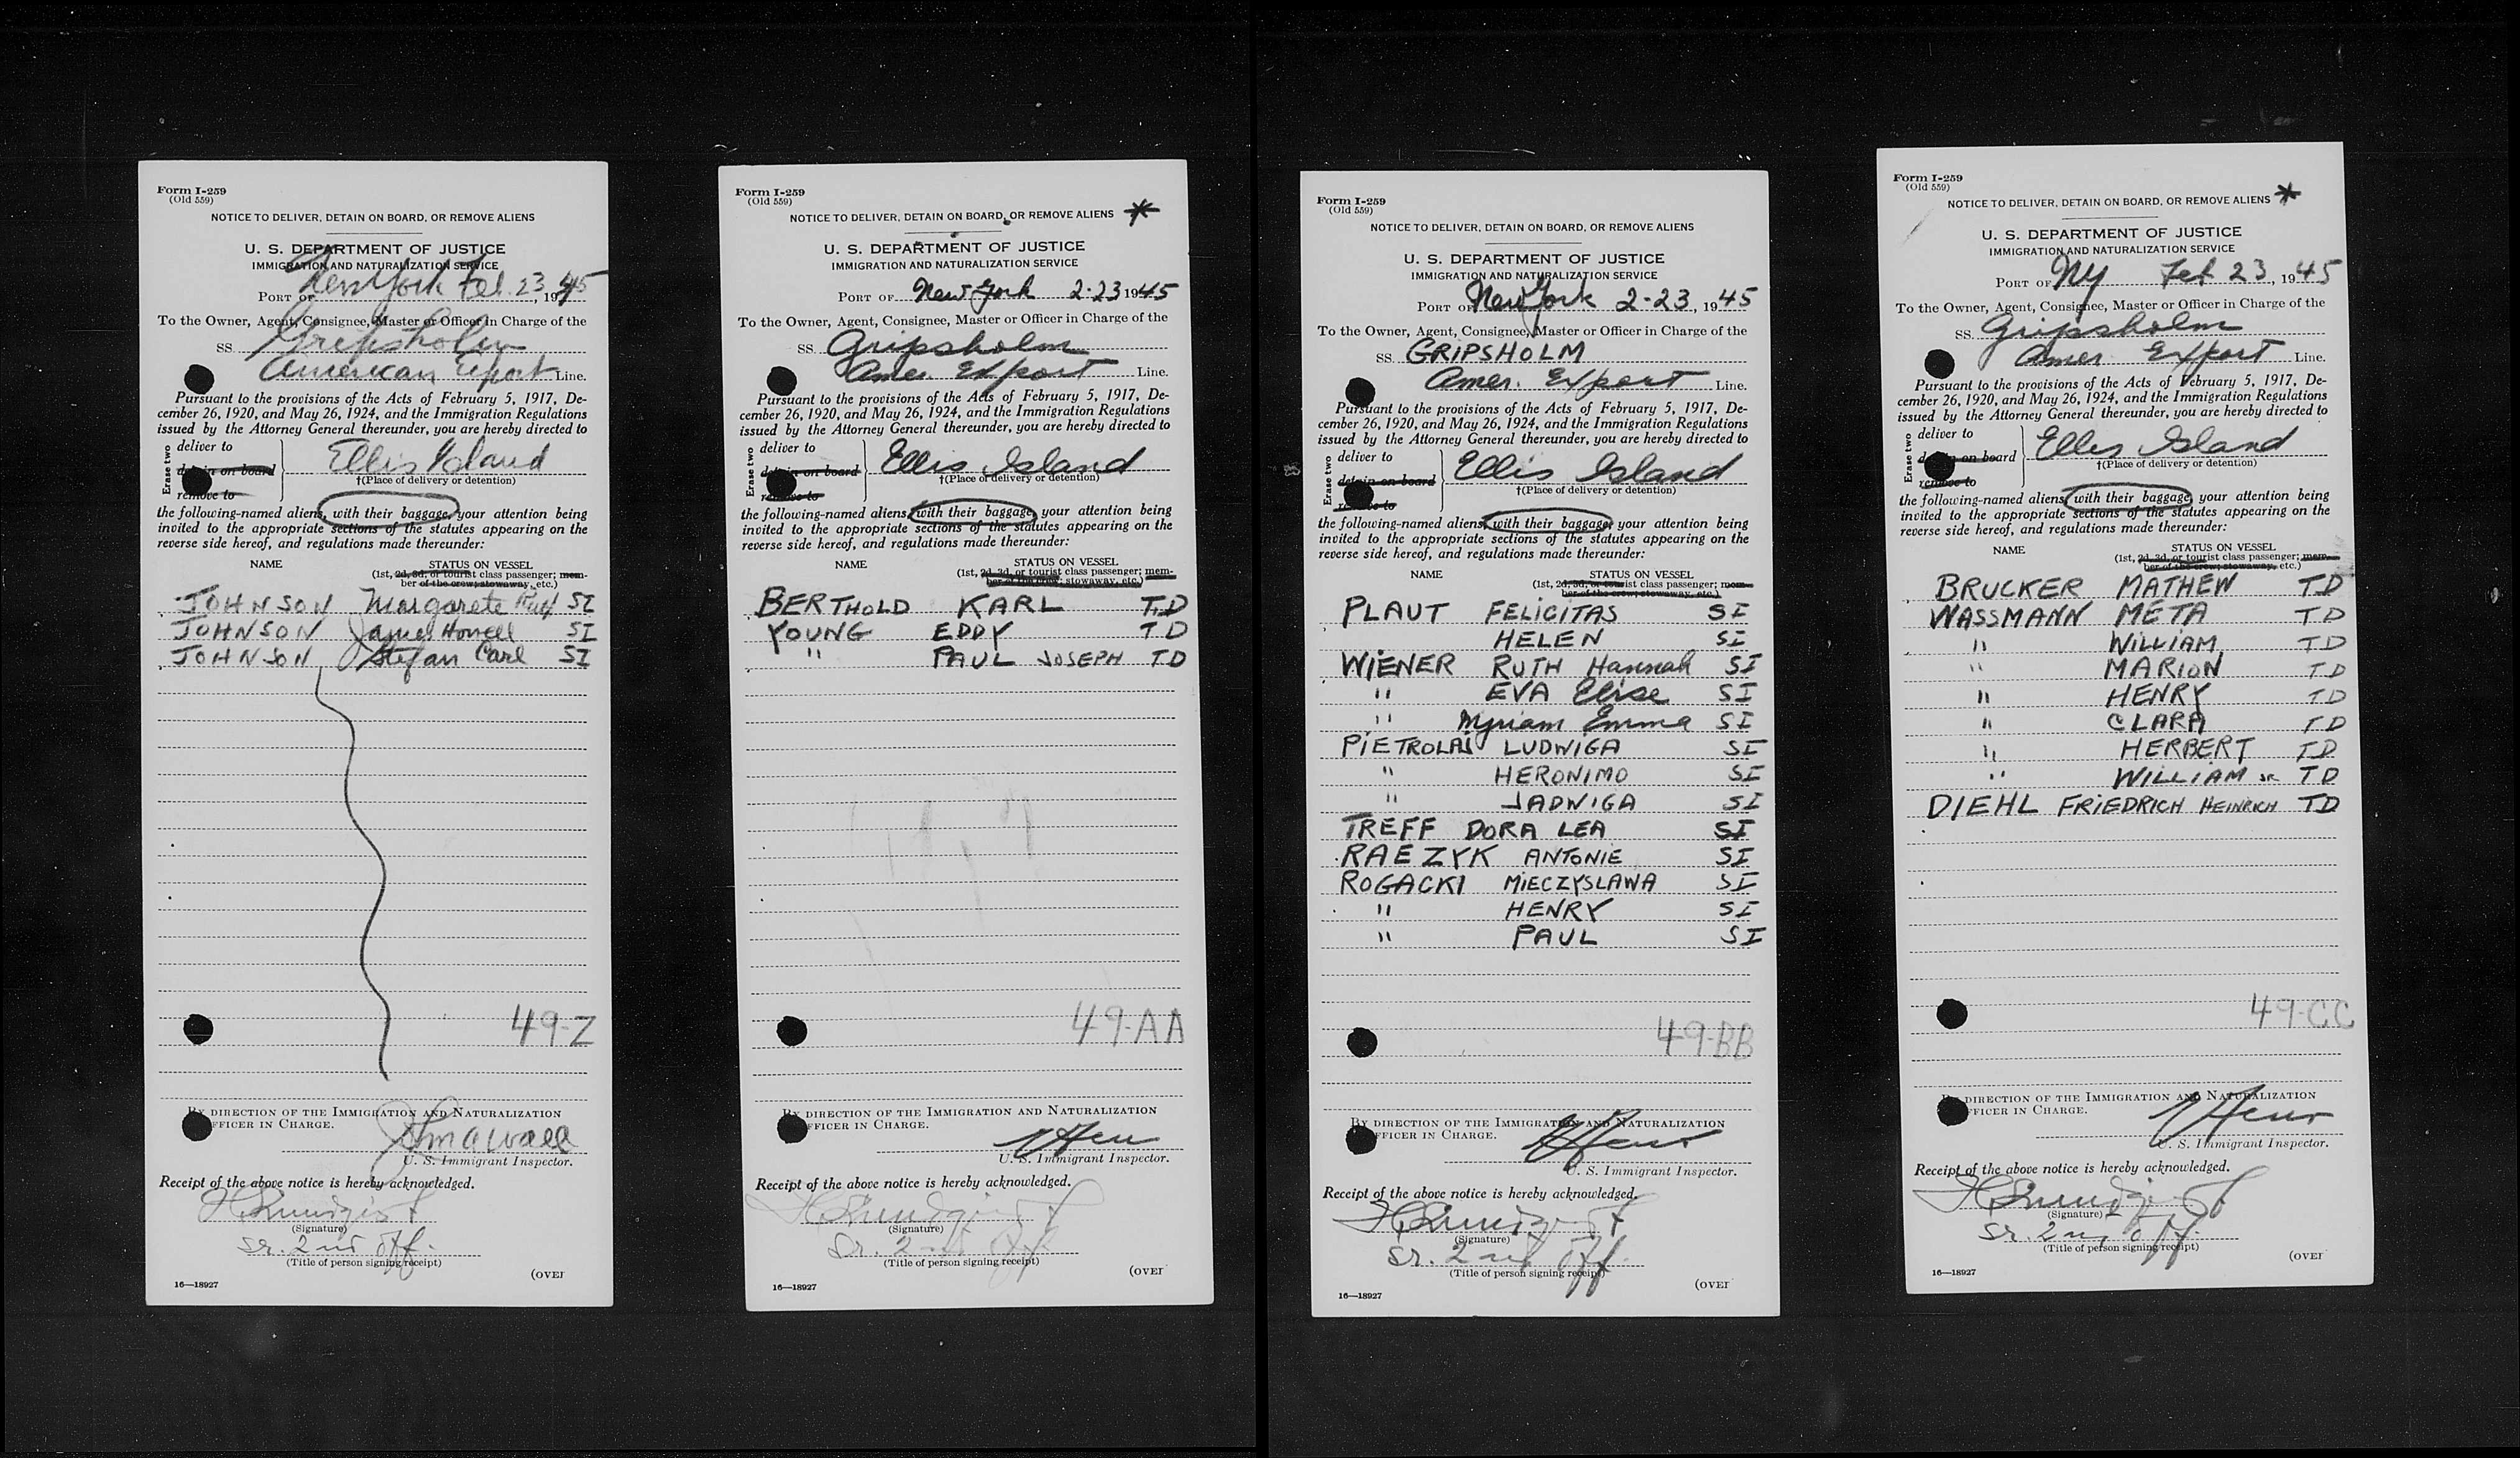 Form I-259
(Old 559)
NOTICE TO DELIVER, DETAIN ON BOARD, OR REMOVE ALIENS
U. S. DEPARTMENT OF JUSTICE
IMMIGRATION AND NATURALIZATION SERVICE
PORT OF New York Feb. 23, 1945
To the Owner, Agent, Consignee, Master or Officer in Charge of the
SS. Gripsholm
American Export Line.
Pursuant to the provisions of the Acts of February 5, 1917, De-
cember 26, 1920, and May 26, 1924, and the Immigration Regulations
issued by the Attorney General thereunder, you are hereby directed to
Erase two
deliver to
detain on board
remove to
Ellis Island
†(Place of delivery or detention)
the following-named aliens, with their baggage, your attention being
invited to the appropriate sections of the statutes appearing on the
reverse side hereof, and regulations made thereunder:
NAME STATUS ON VESSEL
(1st, 2d, 3d, or tourist class passenger; mem-
ber of the crew; stowaway, etc.)
JOHNSON Margarete SI
JOHNSON James Howell SI
JOHNSON Stefan Carl SI
49-Z
BY DIRECTION OF THE IMMIGRATION AND NATURALIZATION
OFFICER IN CHARGE.
U. S. Immigrant Inspector.
Receipt of the above notice is hereby acknowledged.
(Signature)
Sr. 2nd Off.
(Title of person signing receipt)
16—18927 (OVER
Form I-259
(Old 559)
NOTICE TO DELIVER, DETAIN ON BOARD, OR REMOVE ALIENS *
U. S. DEPARTMENT OF JUSTICE
IMMIGRATION AND NATURALIZATION SERVICE
PORT OF New York 2-23 1945
To the Owner, Agent, Consignee, Master or Officer in Charge of the
SS. Gripsholm
Amer. Export Line.
Pursuant to the provisions of the Acts of February 5, 1917, De-
cember 26, 1920, and May 26, 1924, and the Immigration Regulations
issued by the Attorney General thereunder, you are hereby directed to
Erase two
deliver to
detain on board
remove to
Ellis Island
†(Place of delivery or detention)
the following-named aliens, with their baggage, your attention being
invited to the appropriate sections of the statutes appearing on the
reverse side hereof, and regulations made thereunder:
NAME STATUS ON VESSEL
(1st, 2d, 3d, or tourist class passenger; mem-
ber of the crew; stowaway, etc.)
BERTHOLD KARL TD
YOUNG EDDY TD
" PAUL JOSEPH TD
49-AA
BY DIRECTION OF THE IMMIGRATION AND NATURALIZATION
OFFICER IN CHARGE.
U. S. Immigrant Inspector.
Receipt of the above notice is hereby acknowledged.
(Signature)
Sr. 2nd Off.
(Title of person signing receipt)
16—18927 (OVER
Form I-259
(Old 559)
NOTICE TO DELIVER, DETAIN ON BOARD, OR REMOVE ALIENS
U. S. DEPARTMENT OF JUSTICE
IMMIGRATION AND NATURALIZATION SERVICE
PORT OF New York 2-23, 1945
To the Owner, Agent, Consignee, Master or Officer in Charge of the
SS. GRIPSHOLM
Amer. Export Line.
Pursuant to the provisions of the Acts of February 5, 1917, De-
cember 26, 1920, and May 26, 1924, and the Immigration Regulations
issued by the Attorney General thereunder, you are hereby directed to
Erase two
deliver to
detain on board
remove to
Ellis Island
†(Place of delivery or detention)
the following-named aliens, with their baggage, your attention being
invited to the appropriate sections of the statutes appearing on the
reverse side hereof, and regulations made thereunder:
NAME STATUS ON VESSEL
(1st, 2d, 3d, or tourist class passenger; mem-
ber of the crew; stowaway, etc.)
PLAUT FELICITAS SI
HELEN SI
WIENER RUTH Hannah SI
" EVA Elise SI
" Myriam Emma SI
PIETROLAJ LUDWIGA SI
" HERONIMO SI
" JADWIGA SI
TREFF DORA LEA SI
RAEZYK ANTONIE SI
ROGACKI MIECZYSLAWA SI
" HENRY SI
" PAUL SI
49-BB
BY DIRECTION OF THE IMMIGRATION AND NATURALIZATION
OFFICER IN CHARGE.
U. S. Immigrant Inspector.
Receipt of the above notice is hereby acknowledged.
(Signature)
Sr. 2nd Off.
(Title of person signing receipt)
16—18927 (OVER
Form I-259
(Old 559)
NOTICE TO DELIVER, DETAIN ON BOARD, OR REMOVE ALIENS *
U. S. DEPARTMENT OF JUSTICE
IMMIGRATION AND NATURALIZATION SERVICE
PORT OF NY Feb 23, 1945
To the Owner, Agent, Consignee, Master or Officer in Charge of the
SS. Gripsholm
Amer. Export Line.
Pursuant to the provisions of the Acts of February 5, 1917, De-
cember 26, 1920, and May 26, 1924, and the Immigration Regulations
issued by the Attorney General thereunder, you are hereby directed to
Erase two
deliver to
detain on board
remove to
Ellis Island
†(Place of delivery or detention)
the following-named aliens, with their baggage, your attention being
invited to the appropriate sections of the statutes appearing on the
reverse side hereof, and regulations made thereunder:
NAME STATUS ON VESSEL
(1st, 2d, 3d, or tourist class passenger; mem-
ber of the crew; stowaway, etc.)
BRUCKER MATHEW TD
WASSMANN META TD
" WILLIAM TD
" MARION TD
" HENRY TD
" CLARA TD
" HERBERT TD
" WILLIAM SR TD
DIEHL FRIEDRICH HEINRICH TD
49-CC
BY DIRECTION OF THE IMMIGRATION AND NATURALIZATION
OFFICER IN CHARGE.
U. S. Immigrant Inspector.
Receipt of the above notice is hereby acknowledged.
(Signature)
Sr. 2nd Off.
(Title of person signing receipt)
16—18927 (OVER